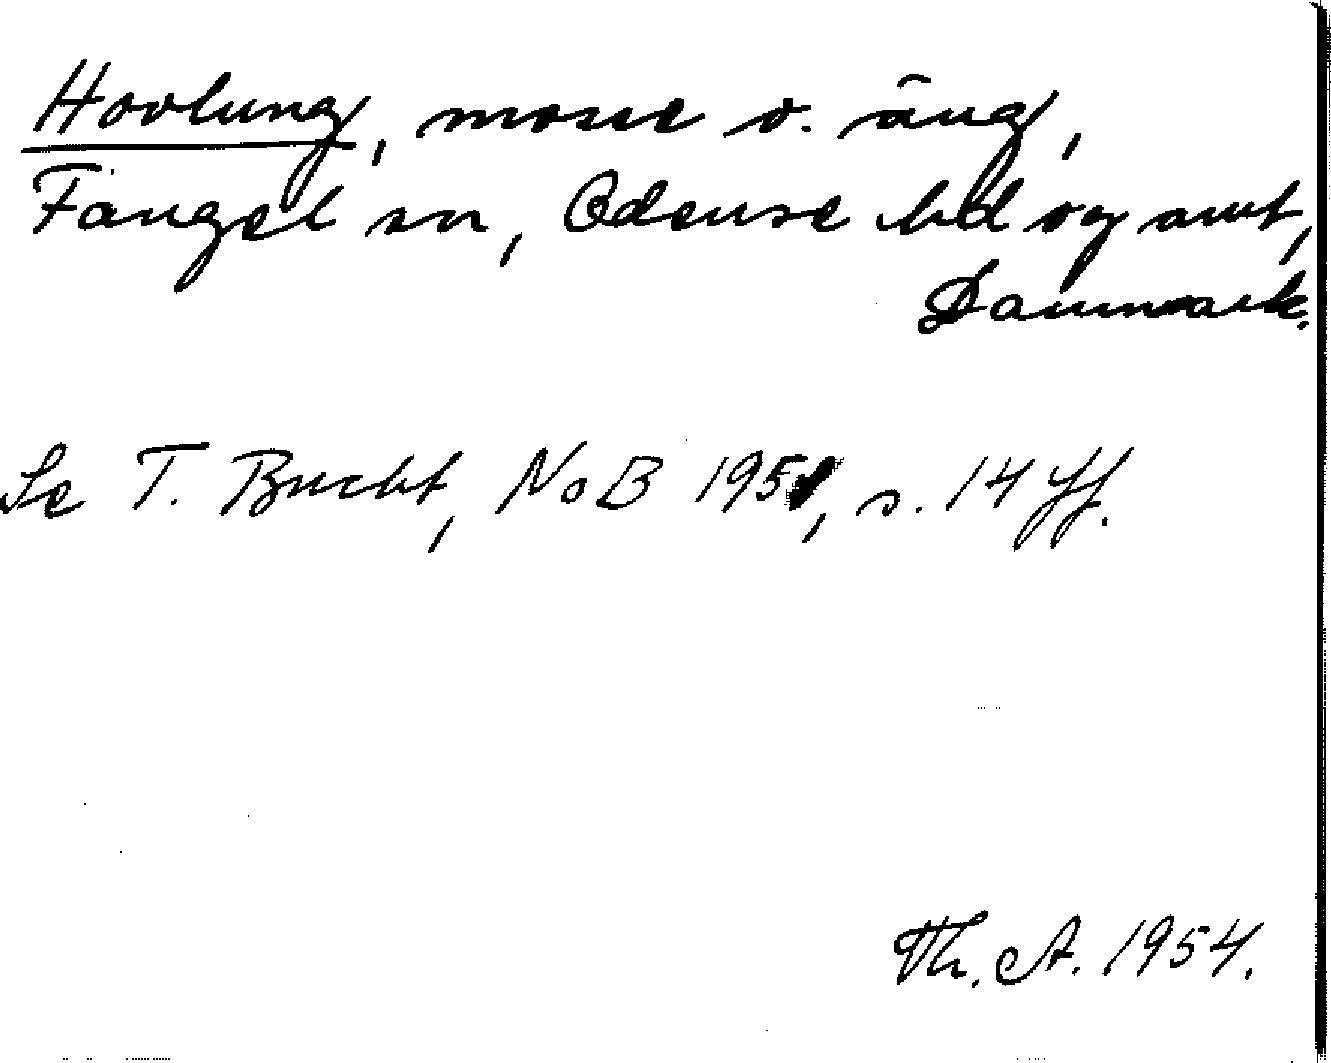 Hovlung, mosse o. äng,
Fangel sn, Odense hd og amt,
Danmark.
Se T. Bucht, NoB 1951, s. 14 ff.
Th. A. 1954.